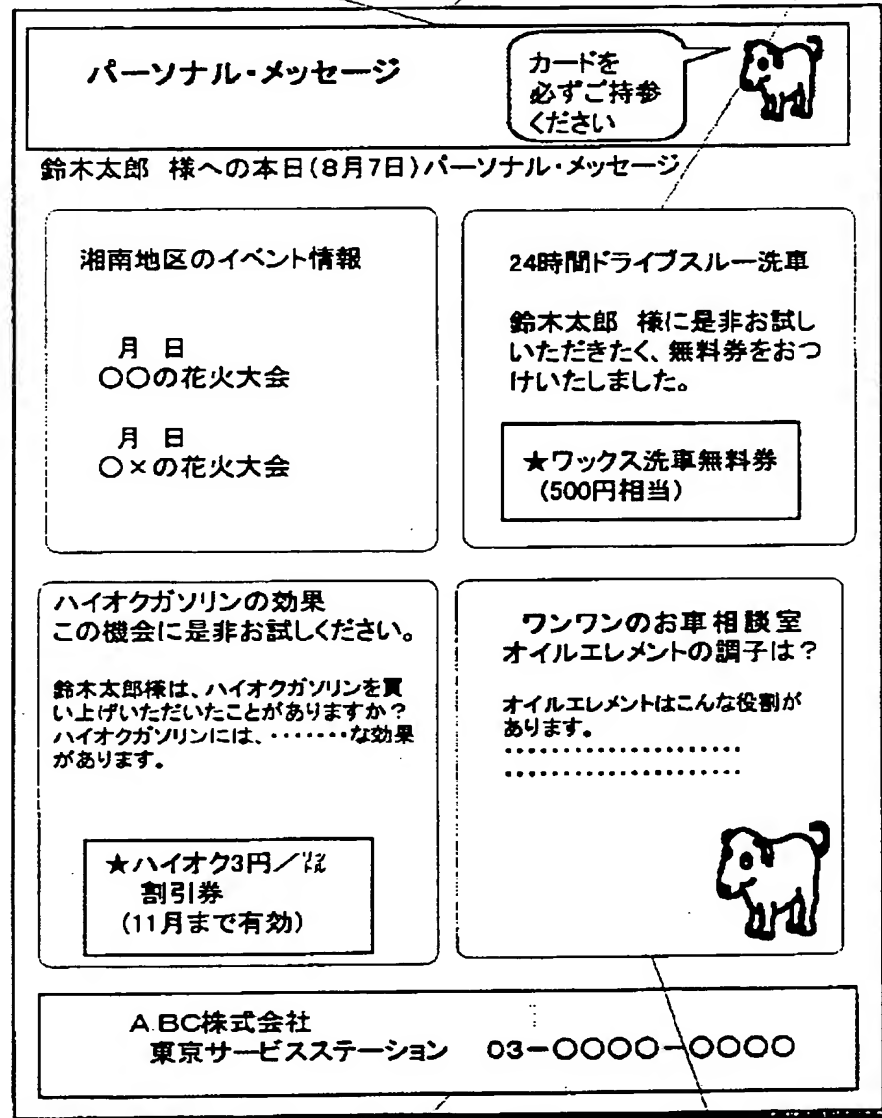 パーソナル・メッセージ
カードを
必ずご持参
ください
鈴木太郎 様への本日(8月7日)パーソナル・メッセージ
湘南地区のイベント情報
月 日
○○の花火大会
月 日
○×の花火大会
24時間ドライブスルー洗車
鈴木太郎 様に是非お試し
いただきたく、無料券をおつ
けいたしました。
★ワックス洗車無料券
(500円相当)
ハイオクガソリンの効果
この機会に是非お試しください。
鈴木太郎様は、ハイオクガソリンを買
い上げいただいたことがありますか?
ハイオクガソリンには、・・・・・・・な効果
があります。
★ハイオク3円/㍑
割引券
(11月まで有効)
ワンワンのお車相談室
オイルエレメントの調子は?
オイルエレメントはこんな役割が
あります。
・・・・・・・・・・・・・・・・・・・・・
・・・・・・・・・・・・・・・・・・・・・
A.BC株式会社
東京サービスステーション 03-○○○○-○○○○